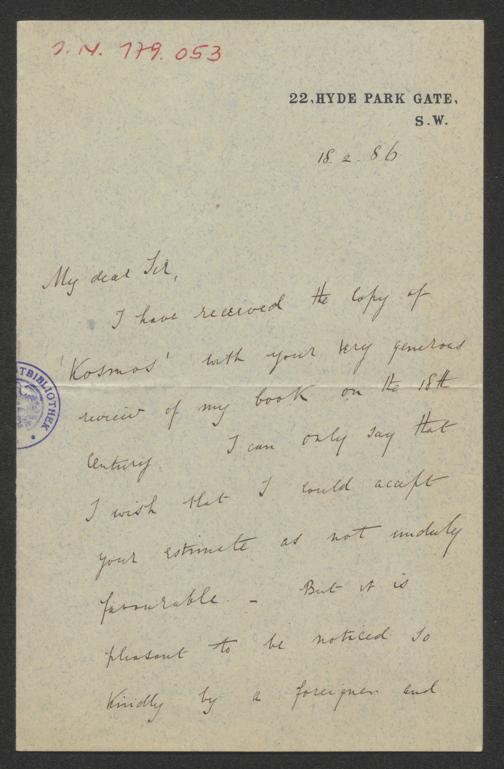 I.N. 179.053
22, HYDE PARK GATE,
S.W.
18. 2. 86
My dear Sir,
I have received the copy of
'Kosmos' with your very generous
review of my book on the 18th
Century I can only say that
I wish that I could accept
your estimate as not unduly
favourable. - But it is
pleasant to be noticed so
kindly by a foreigner and
TBIBLIOTHEK